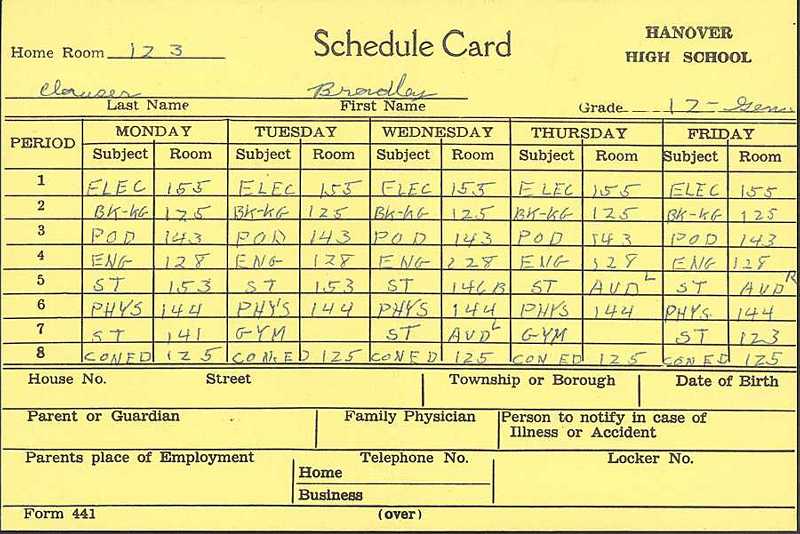 HANOVER
HIGH SCHOOL
Schedule Card
Home Room 123
Clouser Bradley
Last Name First Name Grade 12-Gen.
PERIOD MONDAY TUESDAY WEDNESDAY THURSDAY FRIDAY
Subject Room Subject Room Subject Room Subject Room Subject Room
1 ELEC 155 ELEC 155 ELEC 155 ELEC 155 ELEC 155
2 BK-KG 125 BK-KG 125 BK-KG 125 BK-KG 125 BK-KG 125
3 POD 143 POD 143 POD 143 POD 143 POD 143
4 ENG 128 ENG 128 ENG 128 ENG 128 ENG 128
5 ST 153 ST 153 ST 146B ST AUD L ST AUD R
6 PHYS 144 PHYS 144 PHYS 144 PHYS 144 PHYS 144
7 ST 141 GYM ST AUD L GYM ST 123
8 CONED 125 CONED 125 CONED 125 CON ED 125 CONED 125
House No. Street Township or Borough Date of Birth
Parent or Guardian Family Physician Person to notify in case of
Illness or Accident
Parents place of Employment Telephone No. Locker No.
Home
Business
Form 441 (over)